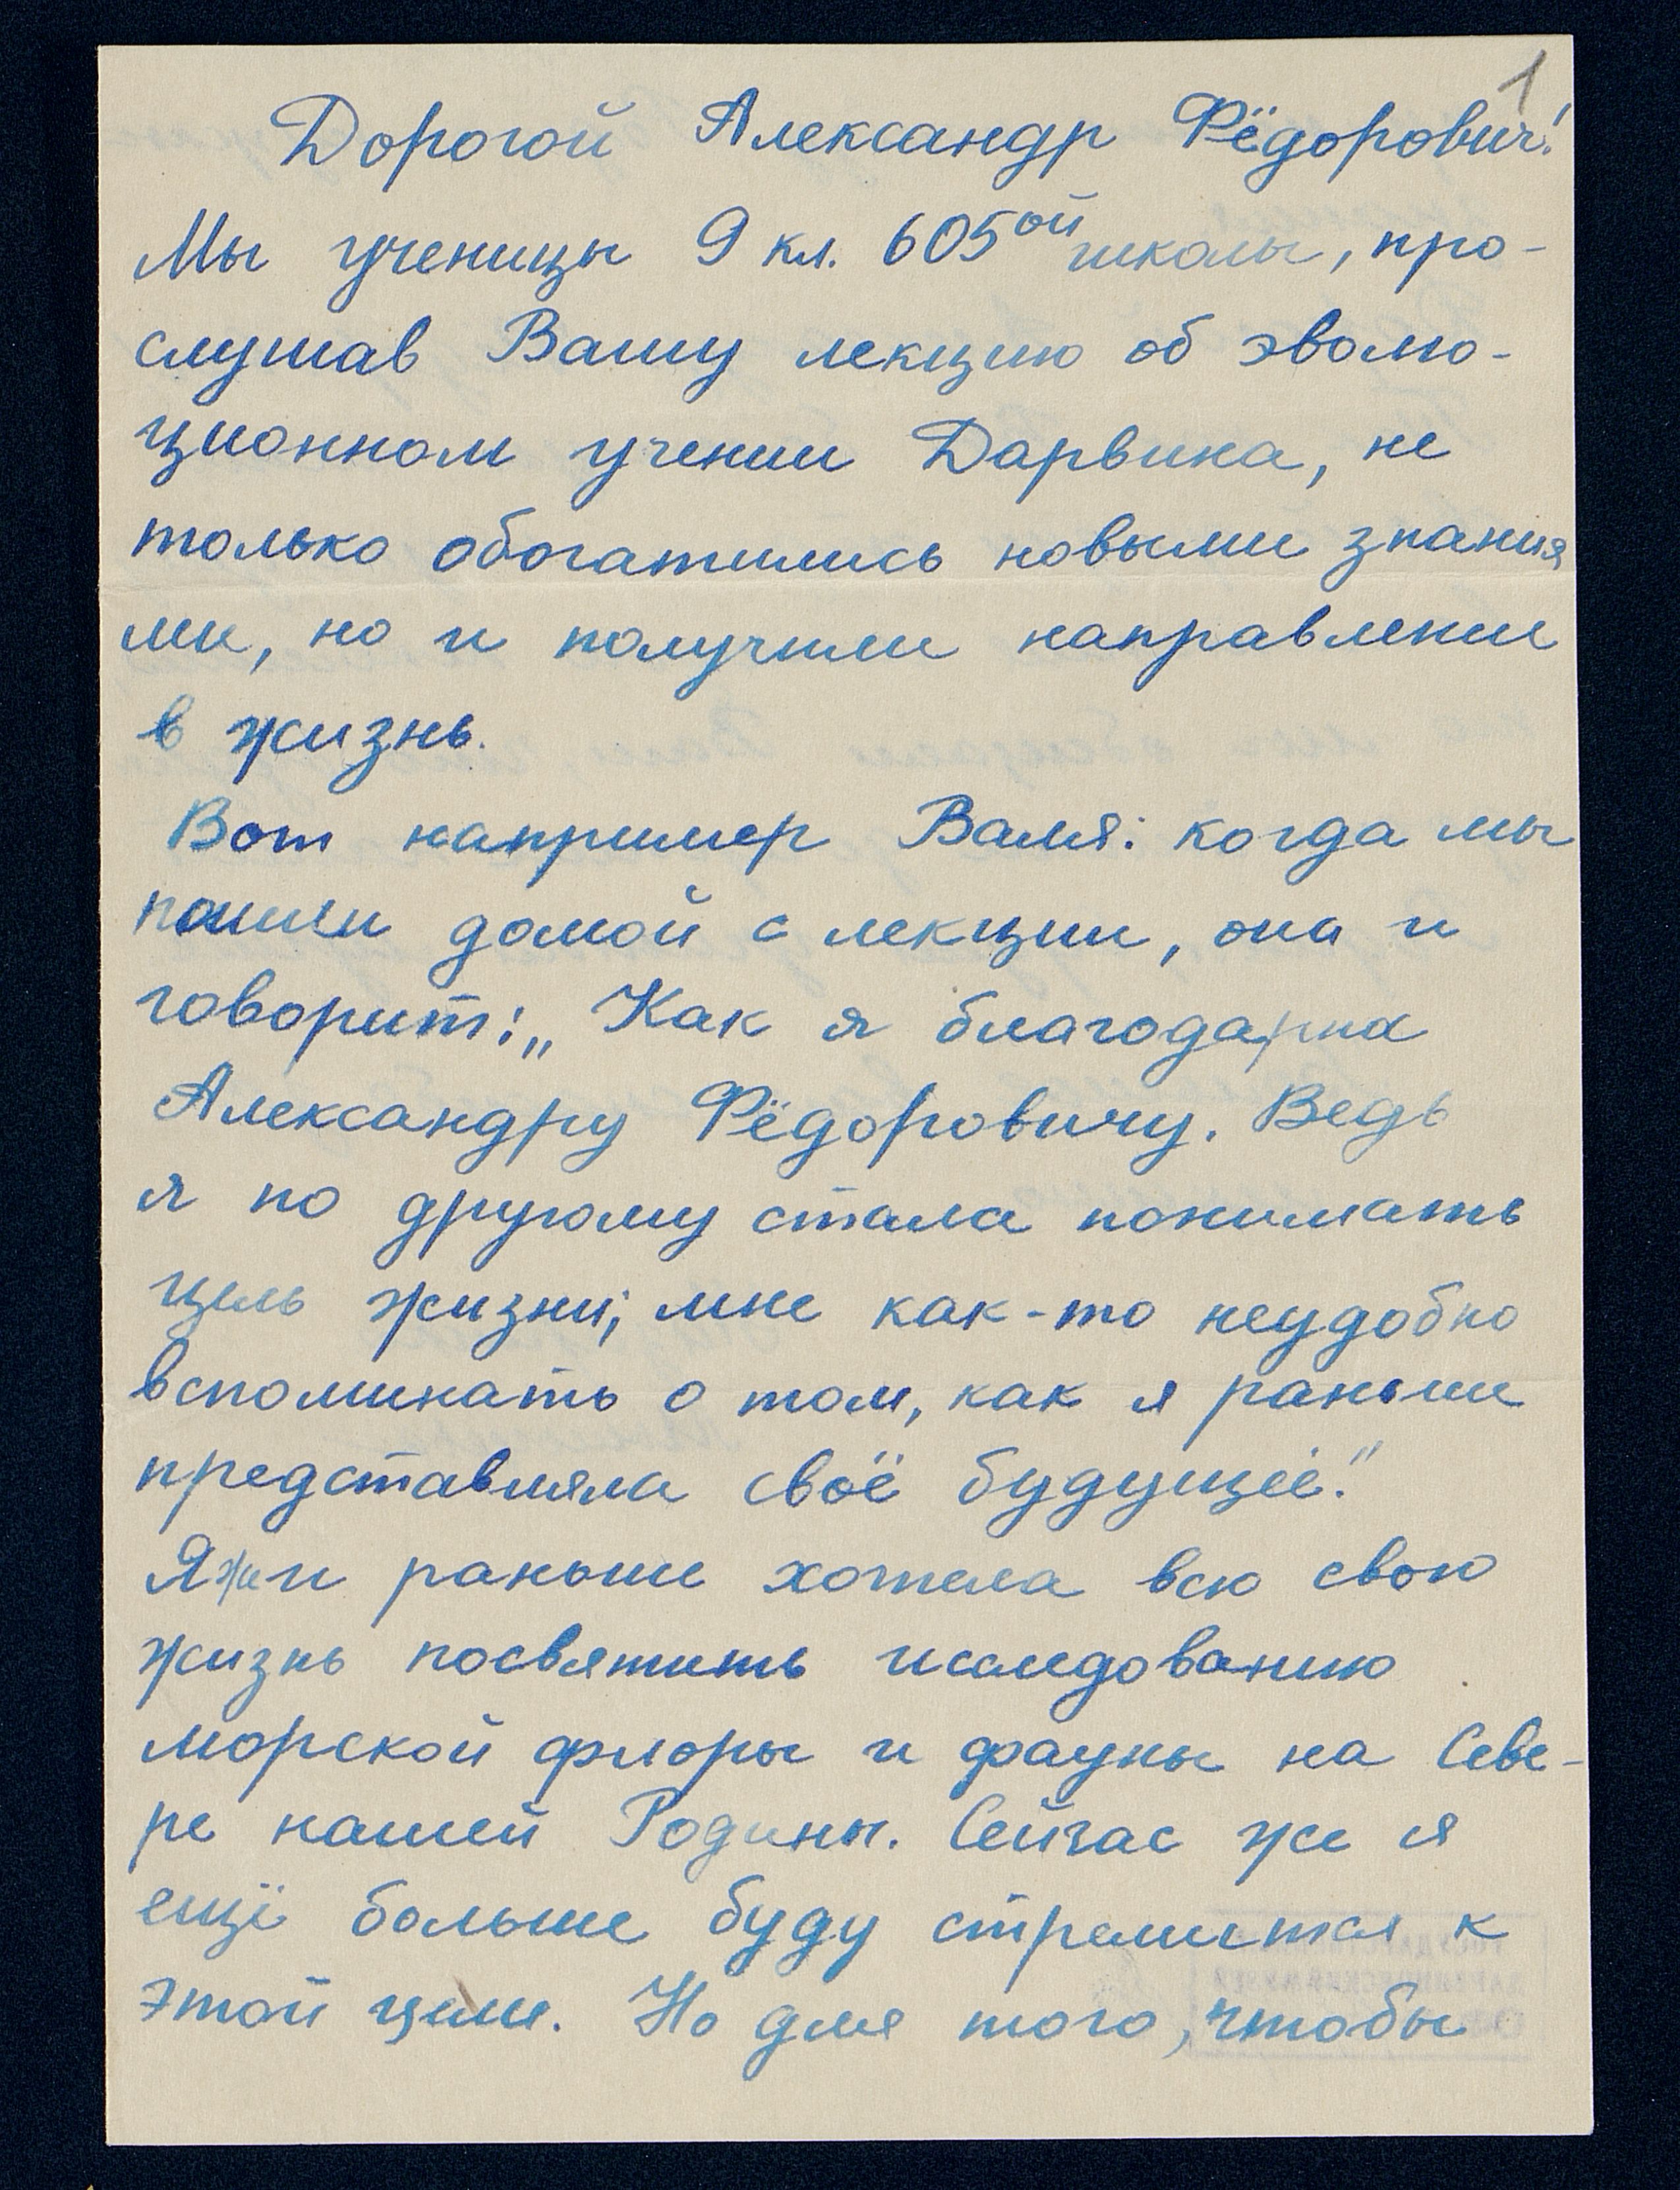 1
Дорогой Александр Фёдорович!
Мы ученицы 9 кл. 605ой школы, про-
слушав Вашу лекцию об эволю-
ционном учении Дарвина, не
только обогатились новыми знания
ми, но и получили направление
в жизнь.
Вот например Валя: когда мы
пошли домой с лекции, она и
говорит: „Как я благодарна
Александру Фёдоровичу. Ведь
я по другому стала понимать
цель жизни; мне как-то неудобно
вспоминать о том, как я раньше
представляла своё будущее."
Я же и раньше хотела всю свою
жизнь посвятить исследованию
морской флоры и фауны на Севе-
ре нашей Родины. Сейчас же я
ещё больше буду стремится к
этой цели. Но для того, чтобы